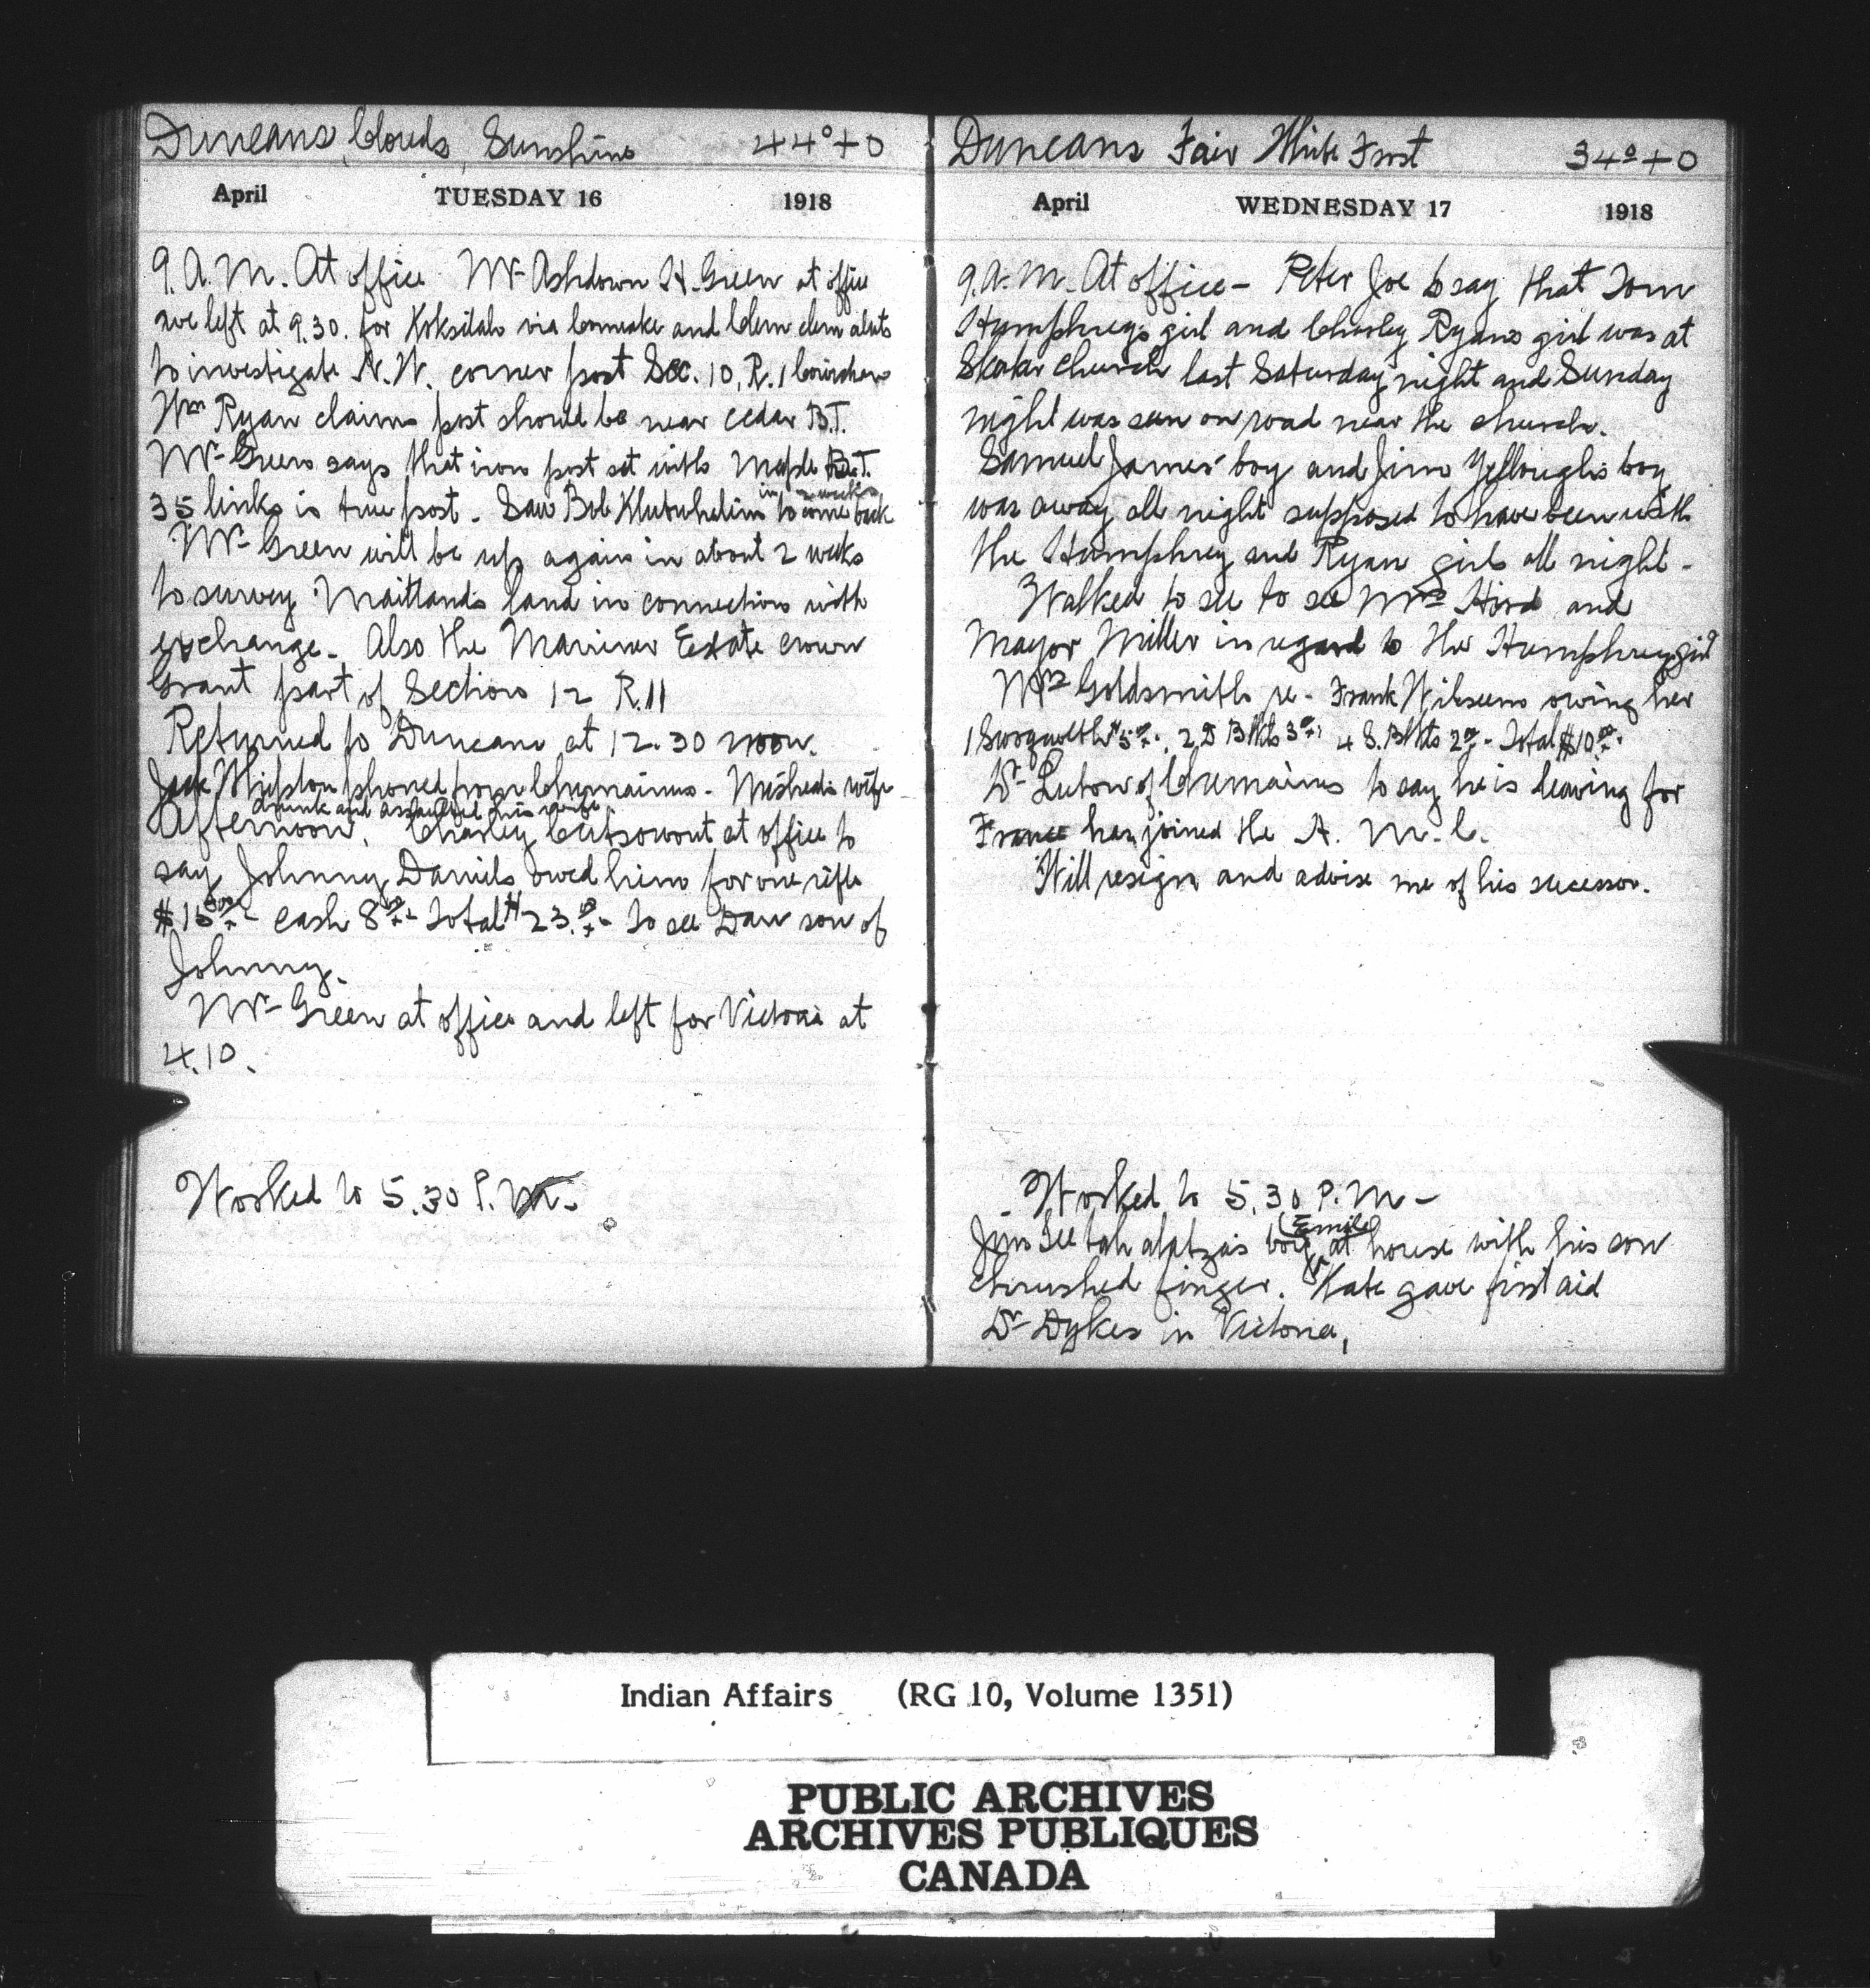 Duncans, Clouds, Sunshine 44°+0
April TUESDAY 16 1918
9. A.M. At office Mr Ashdown H. Green at office
we left at 9.30. for Koksilah via Comeake and Clem clem aluts
to investigate N.W. corner post Sec. 10, R. 1 Cowichan
Wm Ryan claims post should be near cedar B.T.
Mr Green says that iron post set with Maple B.T.
in 2 weeks
35 links is true post. Saw Bob to come back
Mr Green will be up again in about 2 weeks
to survey Maitlands land in connection with
exchange. Also the Mariner Estate crown
Grant part of Section 12 R.11
Returned to Duncans at 12.30 noon.
Jack phoned from Chemainus - wife
drunk and assaulted his wife.
Afternoon. Charley at office to
say Johnny Daniels owed him for one rifle
$15.00 - cash 8.00 - total $23.00 - to see Dan son of
Johnny.
Mr Green at office and left for Victoria at
4.10.
Worked to 5.30 P.M.
Duncans Fair White Frost 34°+0
April WEDNESDAY 17 1918
9. A.M. At office - Peter Joe to say that Tom
Humphreys girl and Charley Ryans girl was at
Shaker church last Saturday night and Sunday
night was seen on road near the church.
Samuel James' boy and Jim boy
was away all night supposed to have been with
the Humphrey and Ryan girls all night -
Walked to see to see Mrs and
Mayor Miller in regard to the Humphrey girl
Mrs Goldsmith re - Frank owing her
$5.00. 2 D Blkts 3.00, 4 S. Blkts 2.00 - Total $10.00.
Dr of Chemainus to say he is leaving for
France has joined the A. M. C.
Will resign and advise me of his sucessor.
Worked to 5.30 P.M -
(Emile)
Jim boy at house with his son
chrushed finger. Kate gave first aid
Dr Dykes in Victoria,
Indian Affairs (RG 10, Volume 1351)
PUBLIC ARCHIVES
ARCHIVES PUBLIQUES
CANADA